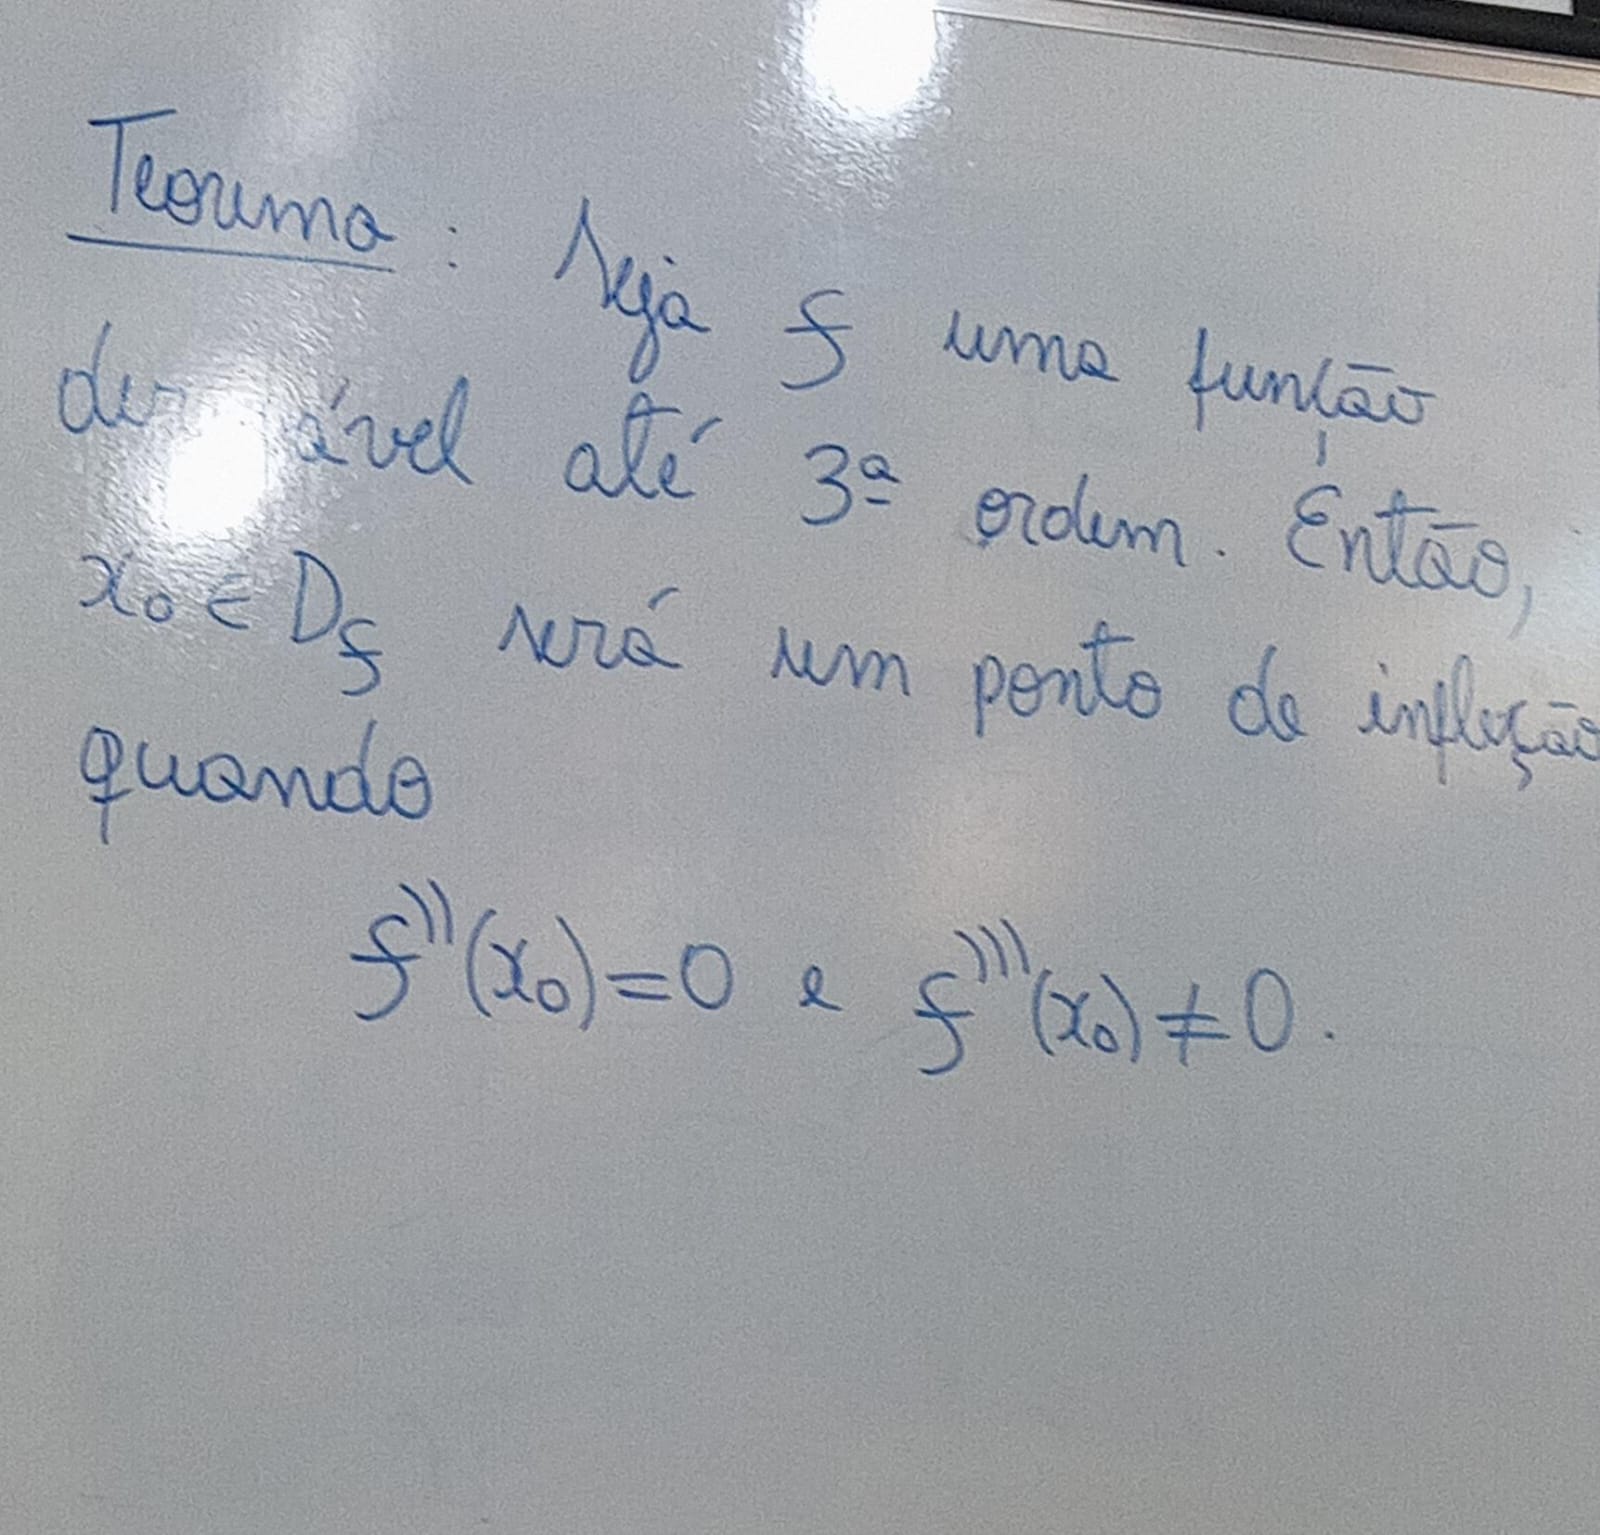 Teorema: Seja f uma função
derivável até 3ª ordem. Então,
x₀ ∈ D_f será um ponto de inflexão
quando
f''(x₀)=0 e f'''(x₀)≠0.